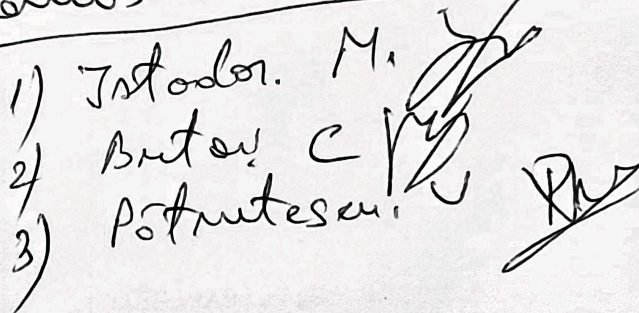 1) Istodor. M.
2) Butoi C
3) Pătrutescu.